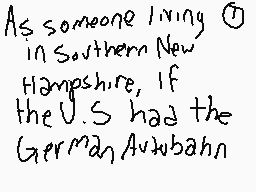 As someone living ①
in Southern New
Hampshire, If
the U.S had the
German Autobahn